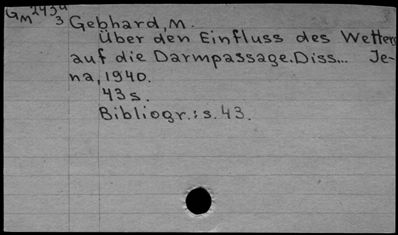 Gm 2434
3 Gebhard, M.
Über den Einfluss des Wetters
auf die Darmpassage. Diss... Je-
na, 1940.
43 s.
Bibliogr.: s. 43.